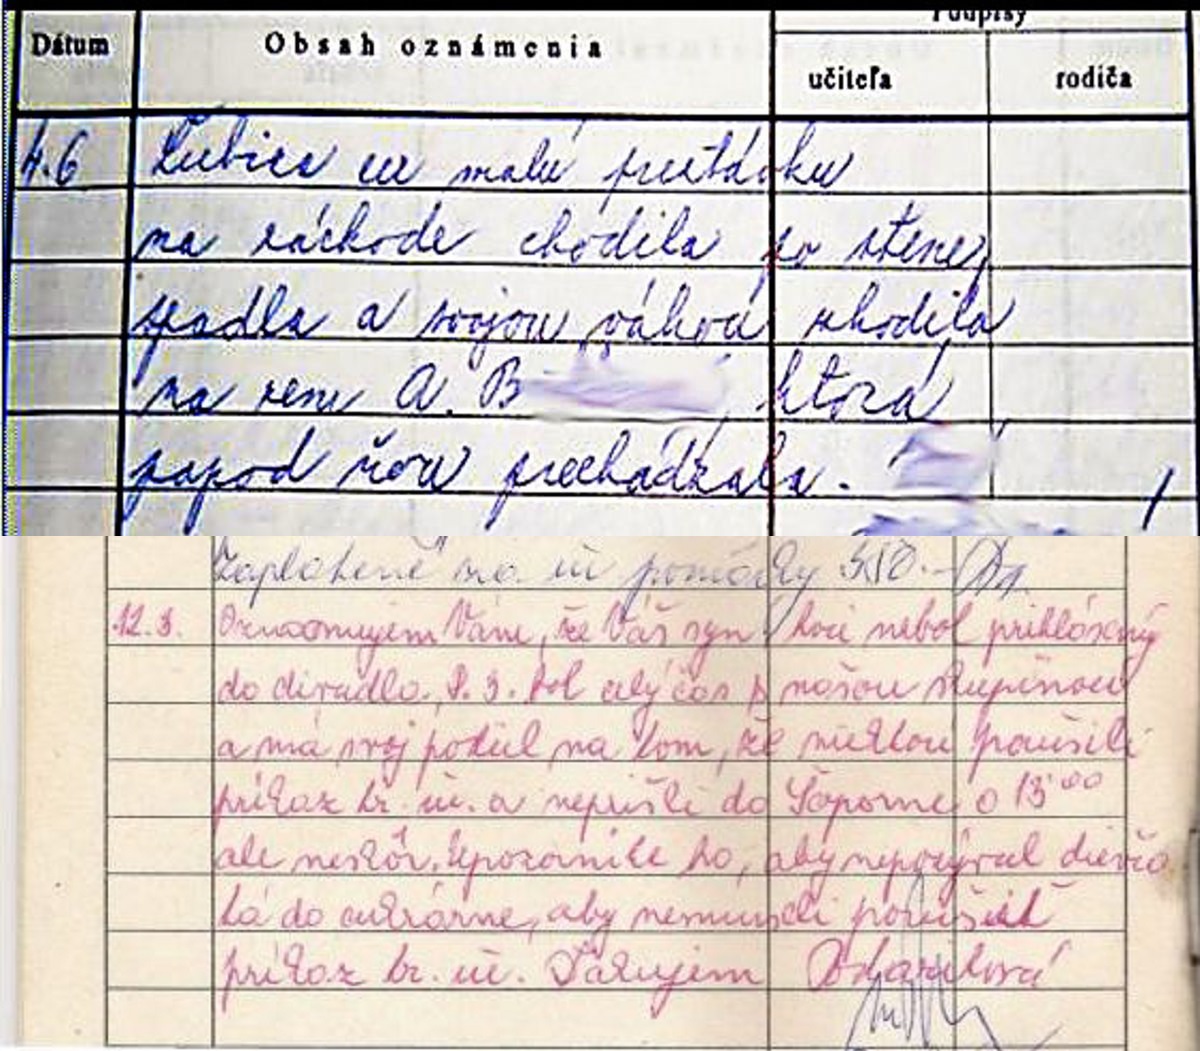 Podpisy
Dátum Obsah oznámenia učiteľa rodiča
4.6 Ľubica cez malú prestávku
na záchode chodila po stene,
spadla a svojou váhou zhodila
na zem A. B , ktorá
popod ňou prechádzala.
Zaplatené na uč. pomôcky 350.-
12.3. Oznamujem Vám, že Váš syn, hoci nebol prihlásený
do divadla, 8.3. bol celý čas s našou skupinou
a má svoj podiel na tom, že niektorí porušili
príkaz tr. uč. a neprišli do Šoporne o 13⁰⁰
ale neskôr. Upozornite ho, aby nepozýval dievča
tá do cukrárne, aby nemuseli porušiť
príkaz tr. uč. Ďakujem